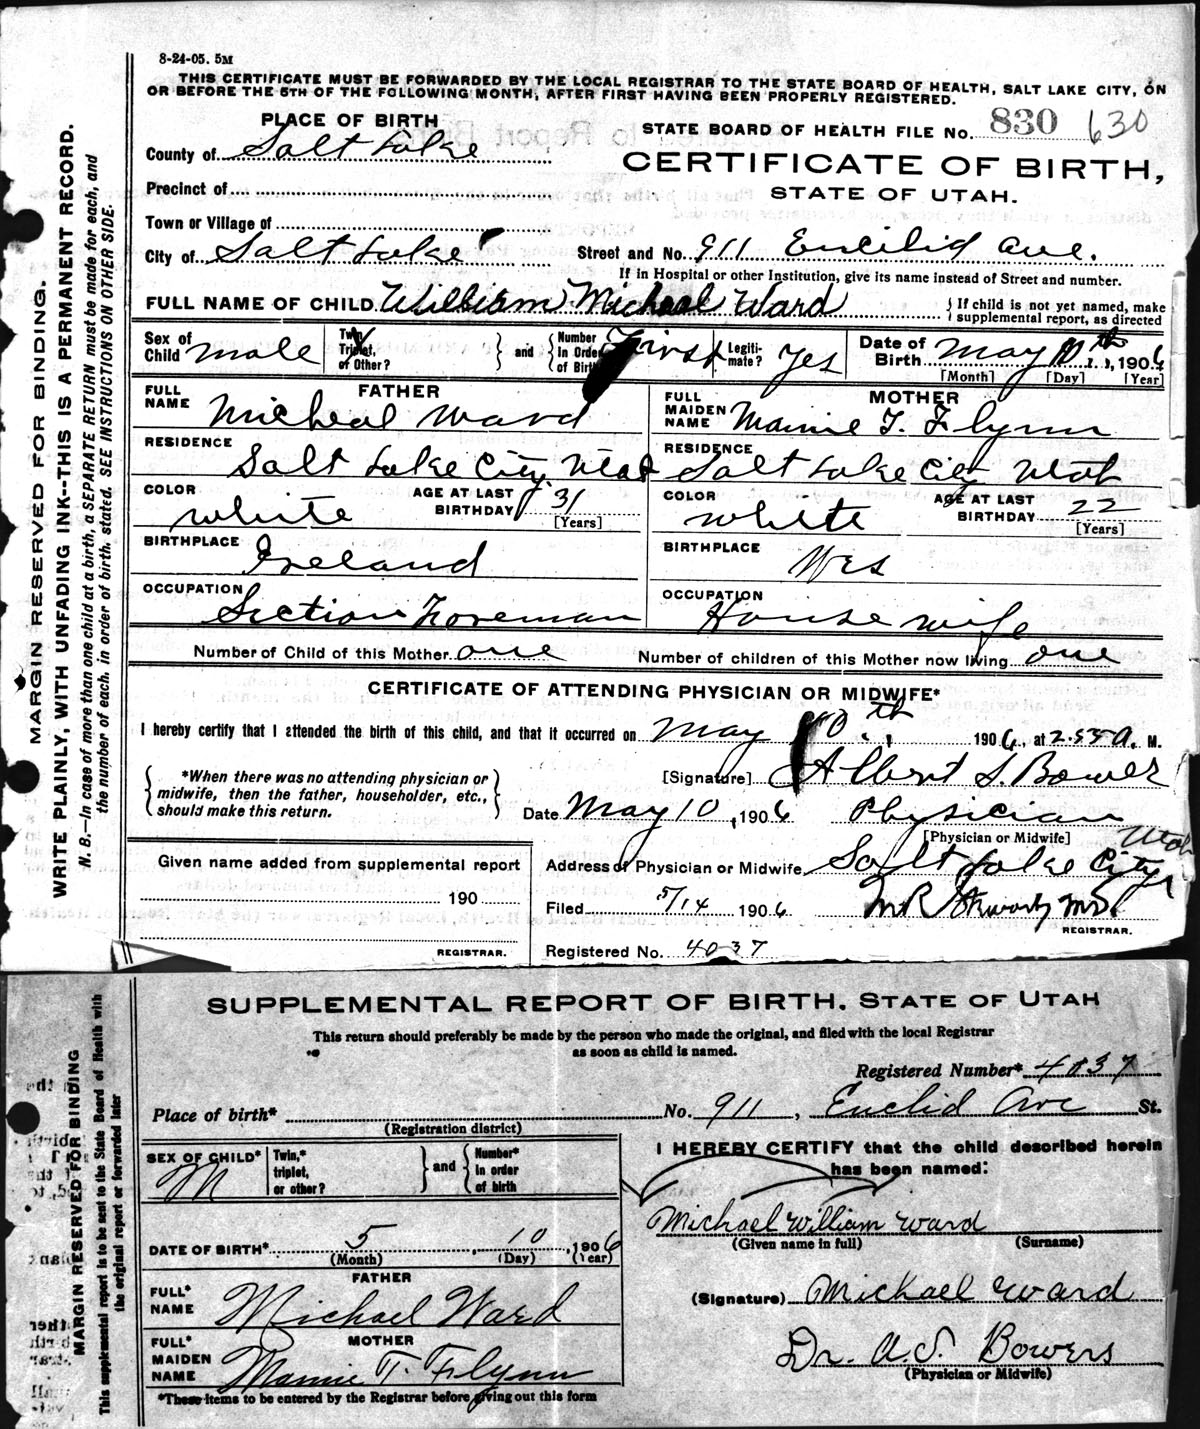 8-24-05. 5M
THIS CERTIFICATE MUST BE FORWARDED BY THE LOCAL REGISTRAR TO THE STATE BOARD OF HEALTH, SALT LAKE CITY, ON
OR BEFORE THE 5TH OF THE FOLLOWING MONTH, AFTER FIRST HAVING BEEN PROPERLY REGISTERED.
PLACE OF BIRTH
STATE BOARD OF HEALTH FILE No. 830 630
County of Salt Lake
CERTIFICATE OF BIRTH,
STATE OF UTAH.
Precinct of
Town or Village of
City of Salt Lake Street and No. 911 Euclid Ave.
If in Hospital or other Institution, give its name instead of Street and number.
FULL NAME OF CHILD William Micheal Ward } If child is not yet named, make supplemental report, as directed
Sex of Child male Twin, Triplet, or Other? } and { Number in Order of Birth First Legitimate? Yes Date of Birth May 10th, 1906
[Month] [Day] [Year]
FATHER MOTHER
FULL NAME Micheal Ward FULL MAIDEN NAME Mamie T. Flynn
RESIDENCE Salt Lake City, Utah RESIDENCE Salt Lake City Utah
COLOR white AGE AT LAST BIRTHDAY 31 [Years] COLOR white AGE AT LAST BIRTHDAY 22 [Years]
BIRTHPLACE Ireland BIRTHPLACE Wis
OCCUPATION Section Foreman OCCUPATION House wife
Number of Child of this Mother one Number of children of this Mother now living one
CERTIFICATE OF ATTENDING PHYSICIAN OR MIDWIFE*
I hereby certify that I attended the birth of this child, and that it occurred on May 10th 1906, at 2.55 A. M.
{ *When there was no attending physician or midwife, then the father, householder, etc., should make this return. }
[Signature] Albert S. Bower
Date May 10, 1906 Physician
[Physician or Midwife]
Given name added from supplemental report
190
REGISTRAR.
Address of Physician or Midwife Salt Lake City, Utah
Filed 5/14 1906 M R M.D.
REGISTRAR.
Registered No. 4037
MARGIN RESERVED FOR BINDING.
WRITE PLAINLY, WITH UNFADING INK--THIS IS A PERMANENT RECORD.
N. B.—In case of more than one child at a birth, a SEPARATE RETURN must be made for each, and
the number of each, in order of birth, stated. SEE INSTRUCTIONS ON OTHER SIDE.
SUPPLEMENTAL REPORT OF BIRTH. STATE OF UTAH
This return should preferably be made by the person who made the original, and filed with the local Registrar
as soon as child is named.
Registered Number* 4037
Place of birth* No. 911, Euclid Ave St.
(Registration district)
SEX OF CHILD* M Twin,* triplet, or other? } and { Number* in order of birth
I HEREBY CERTIFY that the child described herein
has been named:
Michael William Ward
(Given name in full) (Surname)
DATE OF BIRTH* 5, 10, 1906
(Month) (Day) (Year)
FATHER
FULL* NAME Michael Ward
(Signature) Michael Ward
MOTHER
FULL* MAIDEN NAME Mamie T. Flynn
Dr. A. S. Bowers
(Physician or Midwife)
*These items to be entered by the Registrar before giving out this form
MARGIN RESERVED FOR BINDING
This supplemental report is to be sent to the State Board of Health with
the original report or forwarded later